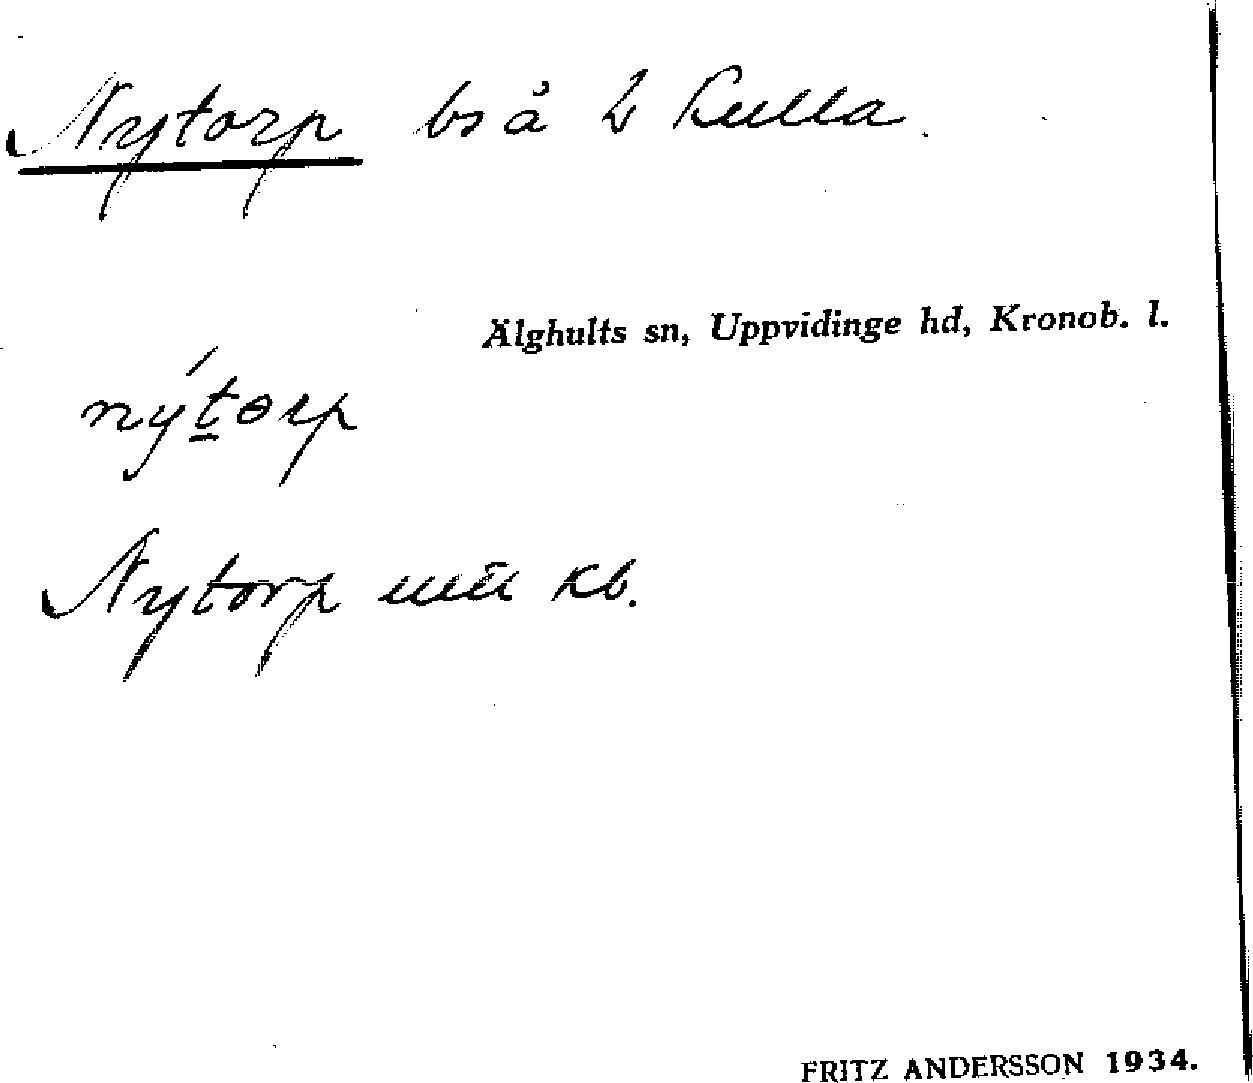 Nytorp bs å Kulla.
Älghults sn, Uppvidinge hd, Kronob. l.
nýtorp
Nytorp kb.
FRITZ ANDERSSON 1934.